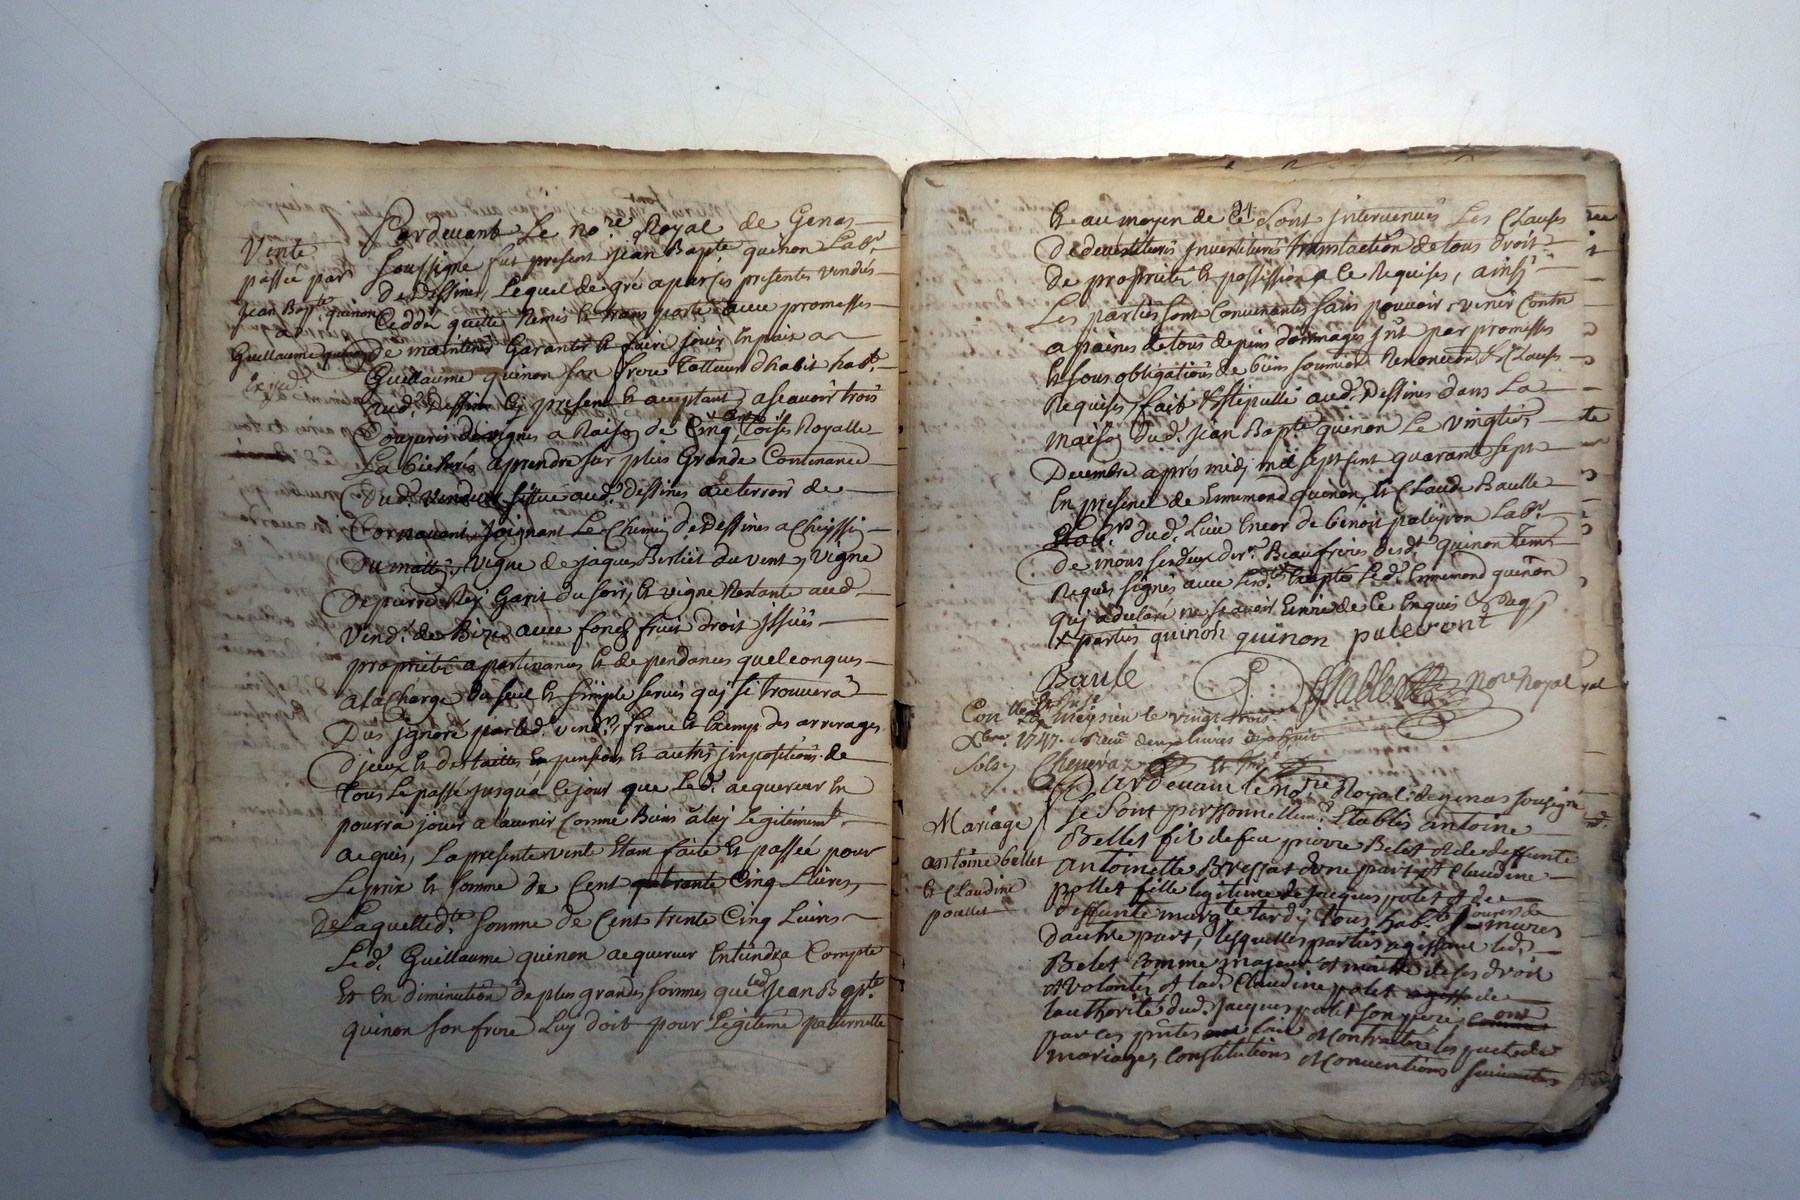 Vente
passée par
Jean Bapte quinon
a
Guillaume quinon
Exped.
Pardevant Le nore Royal de Genas
soussigné fut present Jean Bapte quinon Labr
de Dessines, Lequel de gré a par ses presentes vendus
Ceddé quitté Remis et transporté avec promesses
de maintenir Garantir et faire jouir en paix a
Guillaume quinon son frere tailleur d'habit habt
aud. Dessines icy present et acceptant, ascavoir trois
de vignes a Raison de Cinq Cent toises Royalle
La bicherés a prendre sur plus Grande Continance
Dud. vendeur sittué aud. Dessines au terroir de
joignant Le Chemin de Dessines a
Du mattin, vigne de jaques Berliet du vent, vigne
De pierre Rey Garit du soir, et vigne Restante aud.
vendr de Bize avec fonds fruit droit issües
proprietés apartenances et dependances quelconques
a la Charge du seul et simple servis quy se trouvera
Dus ignoré par led. vendr, franc et Exemp des arrerages
D'iceux et des tailles en pensions et autres impositions de
tous Le passé jusqu'a ce jour que Led. acquereur En
pourra jouir a l'avenir Comme Biens a luy Legitimemt
acquis, La presente vente Etant faite et passée pour
Le prix et somme de Cent trente Cinq Livres,
De Laquelle de somme de Cent trente Cinq Livres
Led. Guillaume quinon acquereur Entendra Compte
Et En diminution de plus grandes sommes que led. Jean Bapte
quinon son frere Luy doit pour Légitime paternelle
24
Et au moyen de Ce sont intervenues Les Clauses
De devestitures investitures translaction de tous droit
De proprieté et possession a ce Requises, ainsy
Les parties sont Convenantes sans pouvoir venir Contre
a paines de tous depens dommages int par promesses
Et sous obligations de biens soumises Renonciaons et Clauses
Requises, fait et stipullé aud. Dessines dans La
maison dud. Jean Bapte quinon Le vingtie
Decembre après midy mil sept cent quarante sept
En presence de Ennemond quinon, et Claude Baulle
Labrs dud. Lieu Encor de benoit paleyron Labr
De mons Beaufreres desdt quinon tem
Requis signés avec Lesdts Excepté Led. Ennemond quinon
quy a declaré ne scavoir Ecrire de Ce Enquis et Req
et parties quinon quinon paleiront
Baule
nore Royal
Conllé
Meysieu le vingt trois
Xbre 1747. Reçu deux livres dix huit
sols
Chenevaz
Mariage
antoine bellet
et Claudine
poullet
Pardevant le nore Royal de genas soussigné
se sont personnellemt Etablis antoine
Bellet fils de feu pierre Belet et de deffunte
antoinette Bressat d'une part et Claudine
pollet fille legitime de Jacques polet et de
deffunte margte tardy tous habts
d'autre part, lesquelles parties agissant led.
Belet comme majeur et maitre de ses droit
et volontés et lad. Claudine polet de
l'authorité dud. Jacques polet son pere, ont
par ces pntes fait et contracté les pactes de
mariages, Constitutions et Conventions suivantes